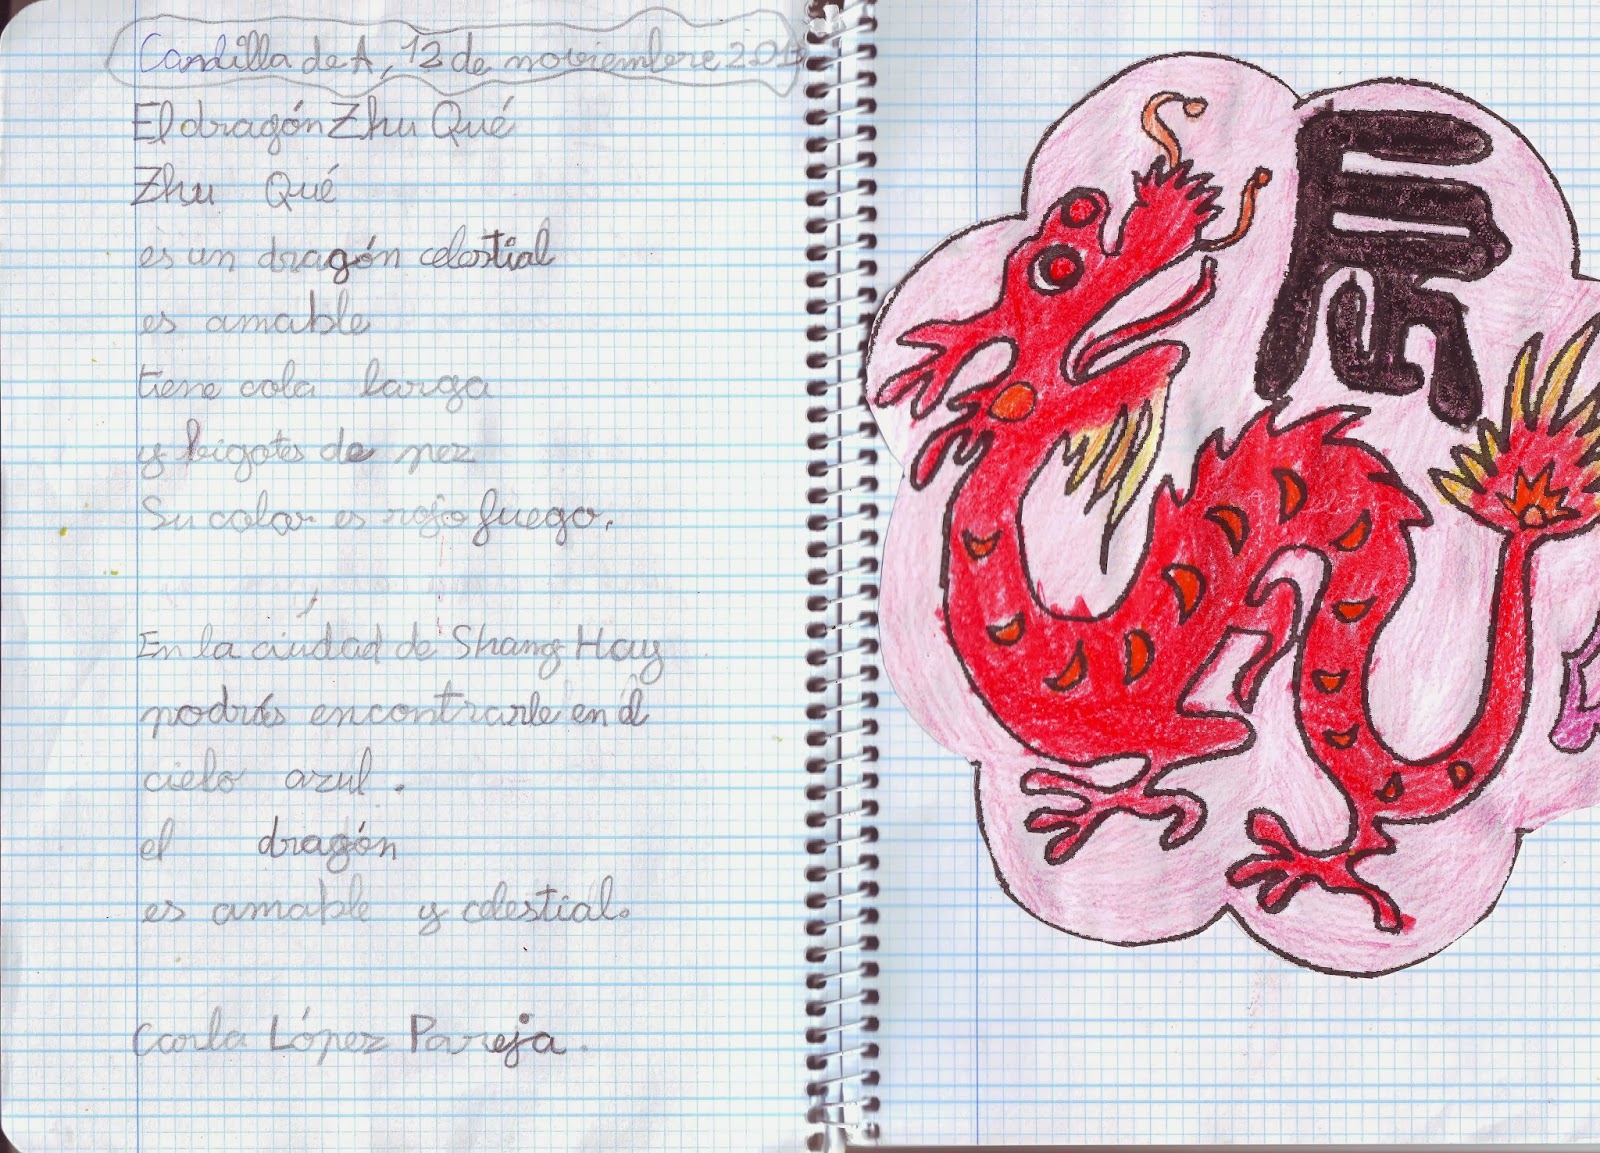 Candilla de A, 12 de noviembre 201
El dragón Zhu Qué
Zhu Qué
es un dragón celestial
es amable
tiene cola larga
y bigotes de pez
Su color es rojo fuego.
En la ciudad de Shang Hay
podrás encontrarle en el
cielo azul.
el dragón
es amable y celestial.
Carla López Pareja.
辰